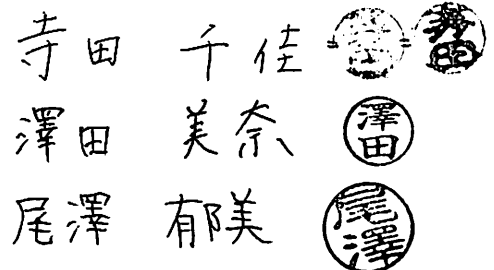 寺田 千佳
澤田 美奈 澤田
尾澤 郁美 尾澤